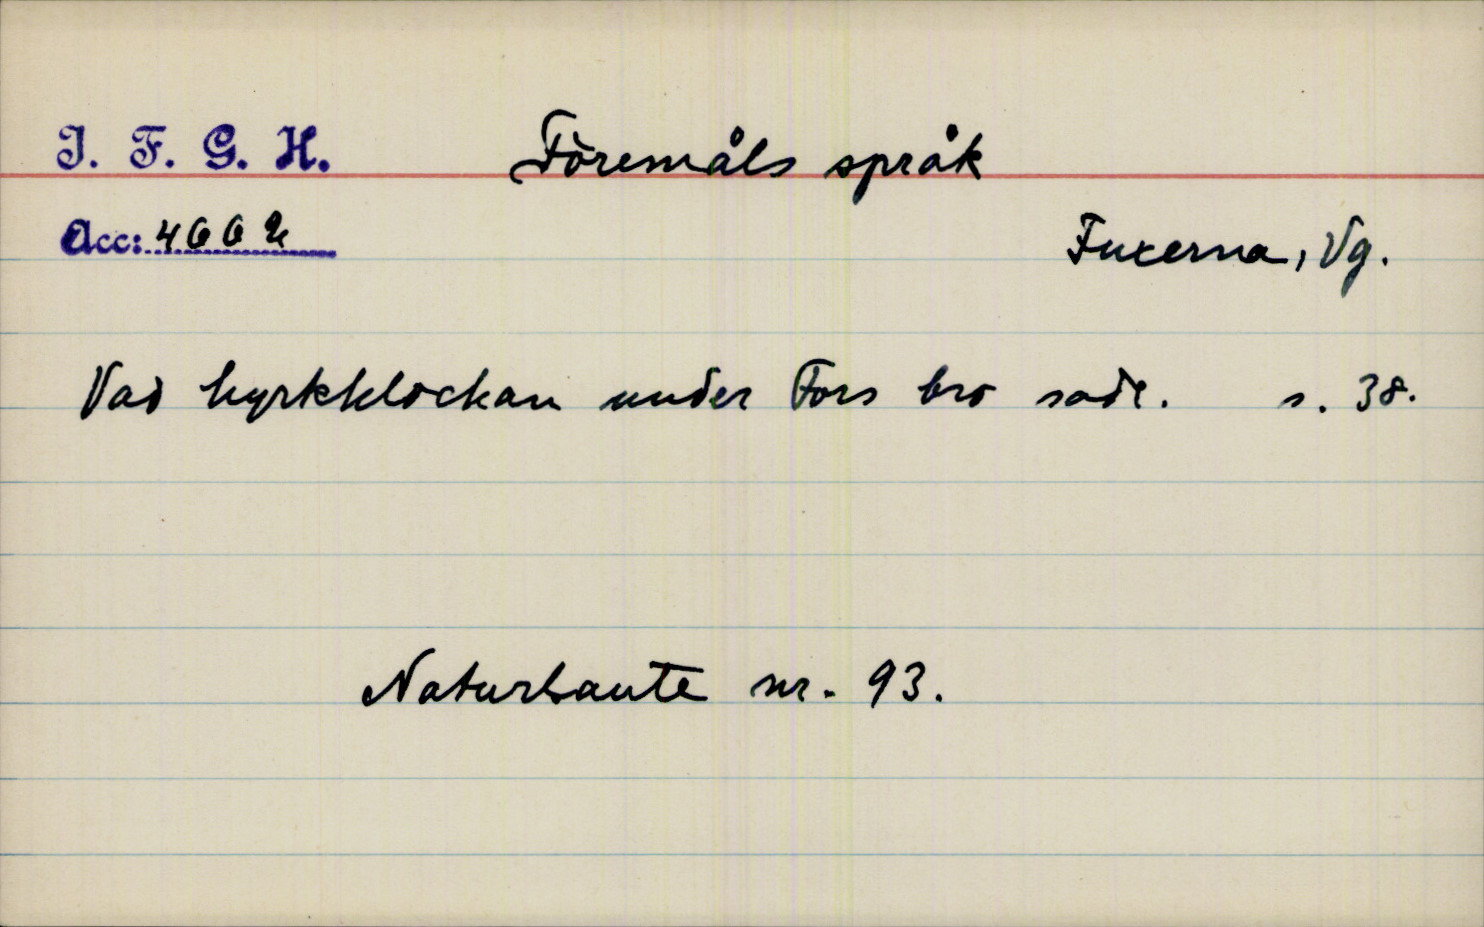 I. F. G. H.
Föremåls språk
Acc: 4662
Fuxerna, Vg.
Vad kyrkklockan under Fors bro sade. s. 38.
Naturlaute nr. 93.